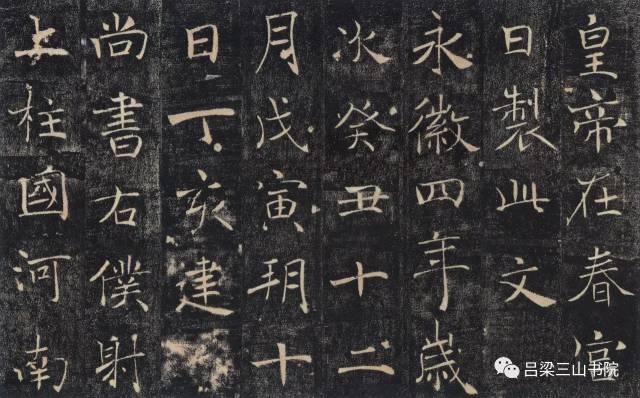 皇帝在春宮
日製此文
永徽四年歲
次癸丑十二
月戊寅朔十
日丁亥建
尚書右僕射
上柱國河南
吕梁三山书院